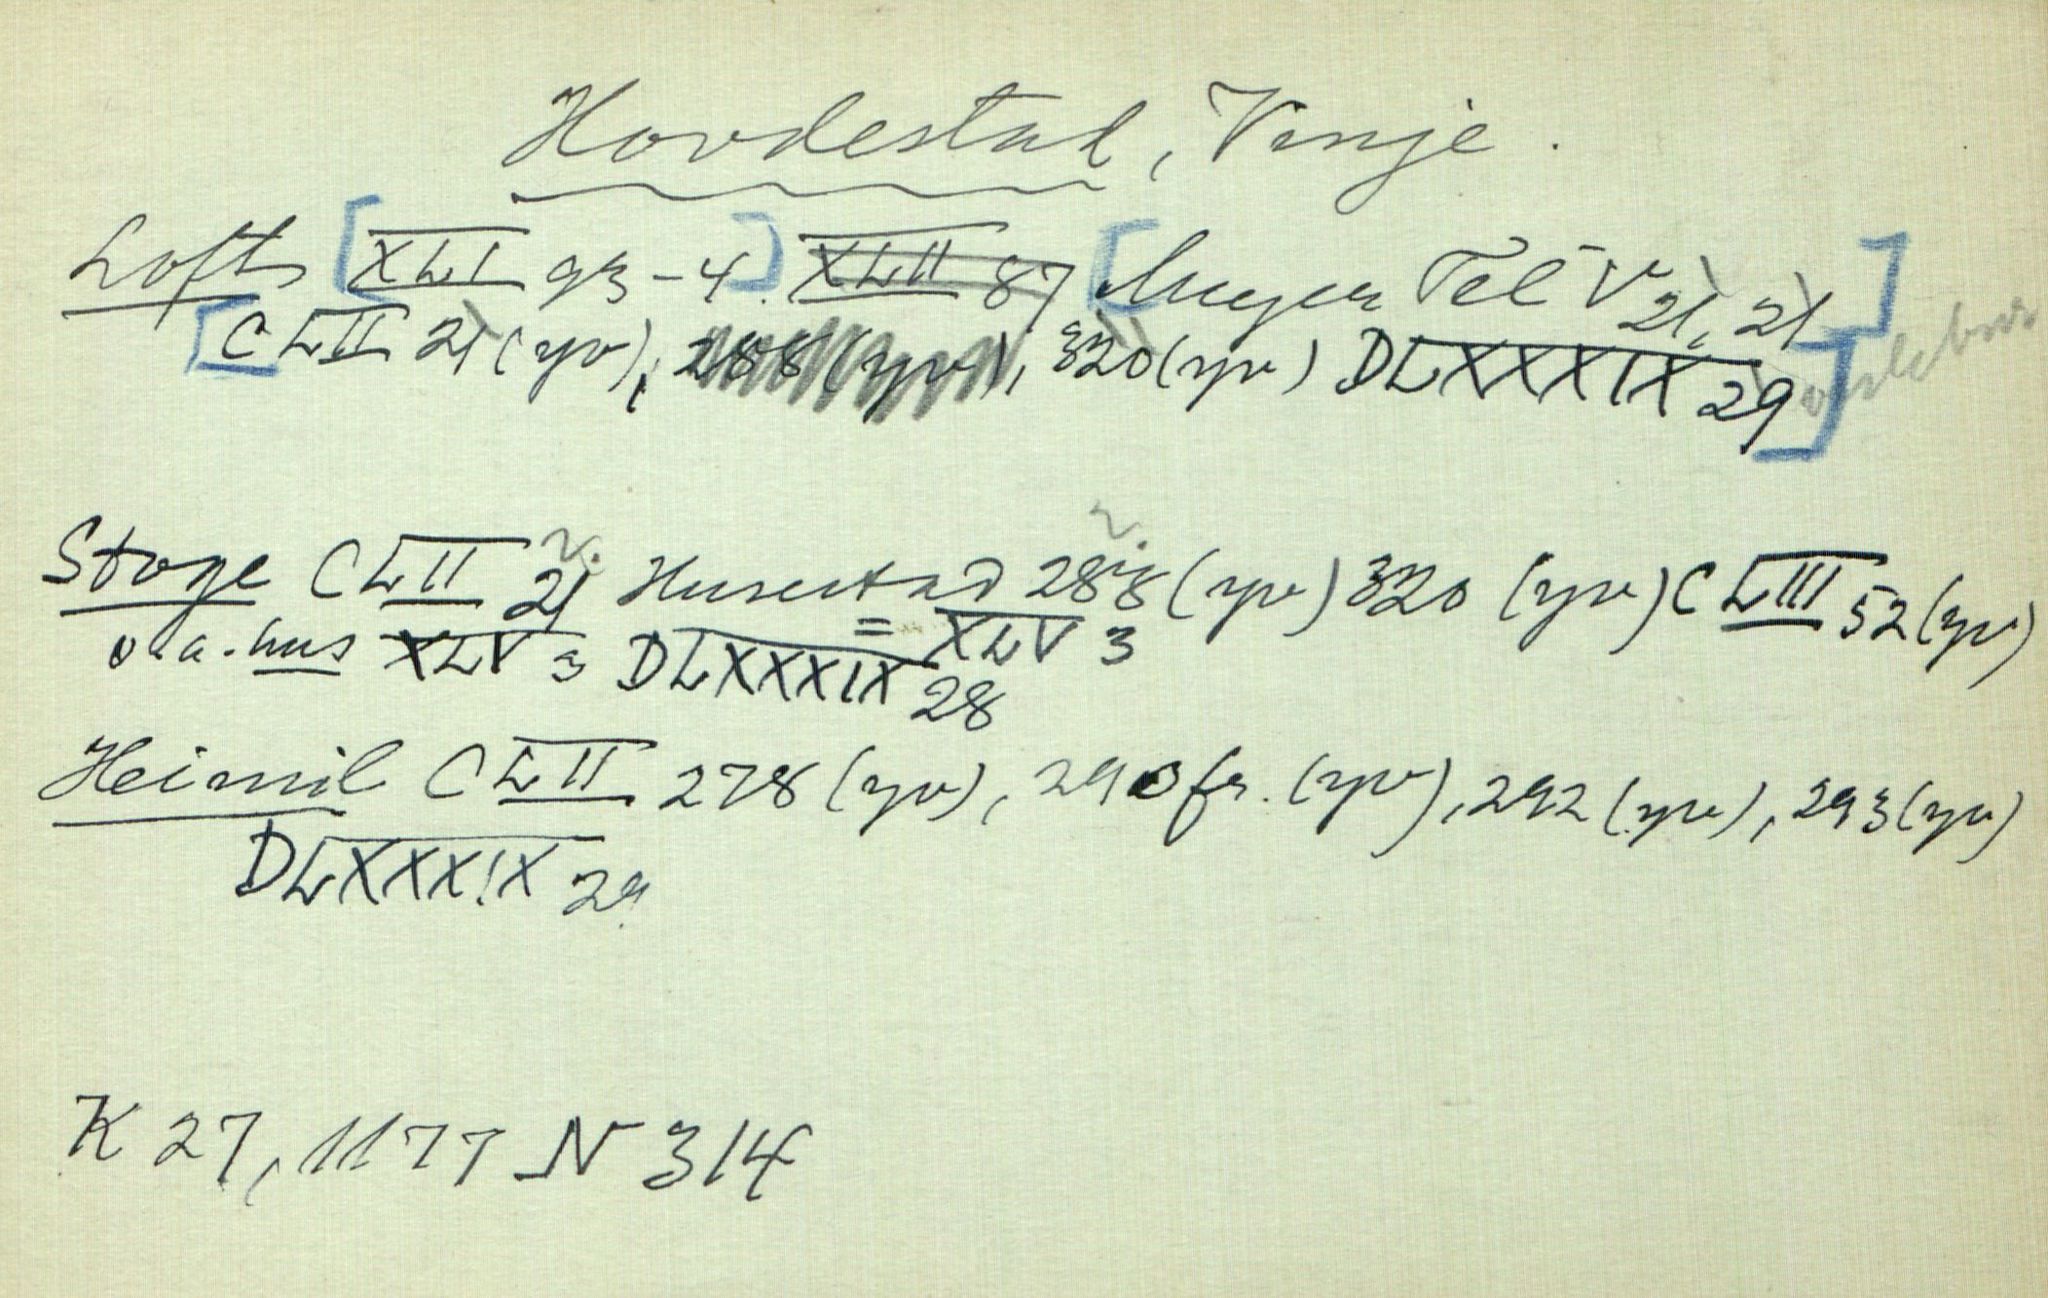 Hovdestad, Vinje.
Loft [XLI 93-4]. XLII 87 [Meyer Tel V 21, 21]
[CLII 21 (yv), 288 (yv), 320 (yv) DLXXXIX 29]
Stoge CLII 21 ? Husestad 288 ? (yv) 320 (yv) CLIII 52 (yv)
o.a. hus XLV 3 DLXXXIX 28 = XLV 3
Heimil CLII 278 (yv), 290 fr. (yv), 292 (yv), 293 (yv)
DLXXXIX 29
K 27, 1177 N 314